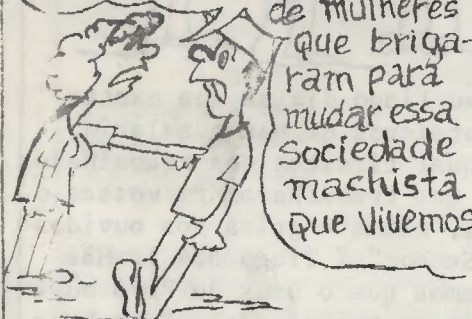 de mulheres
que briga-
ram para
mudar essa
sociedade
machista
que vivemos